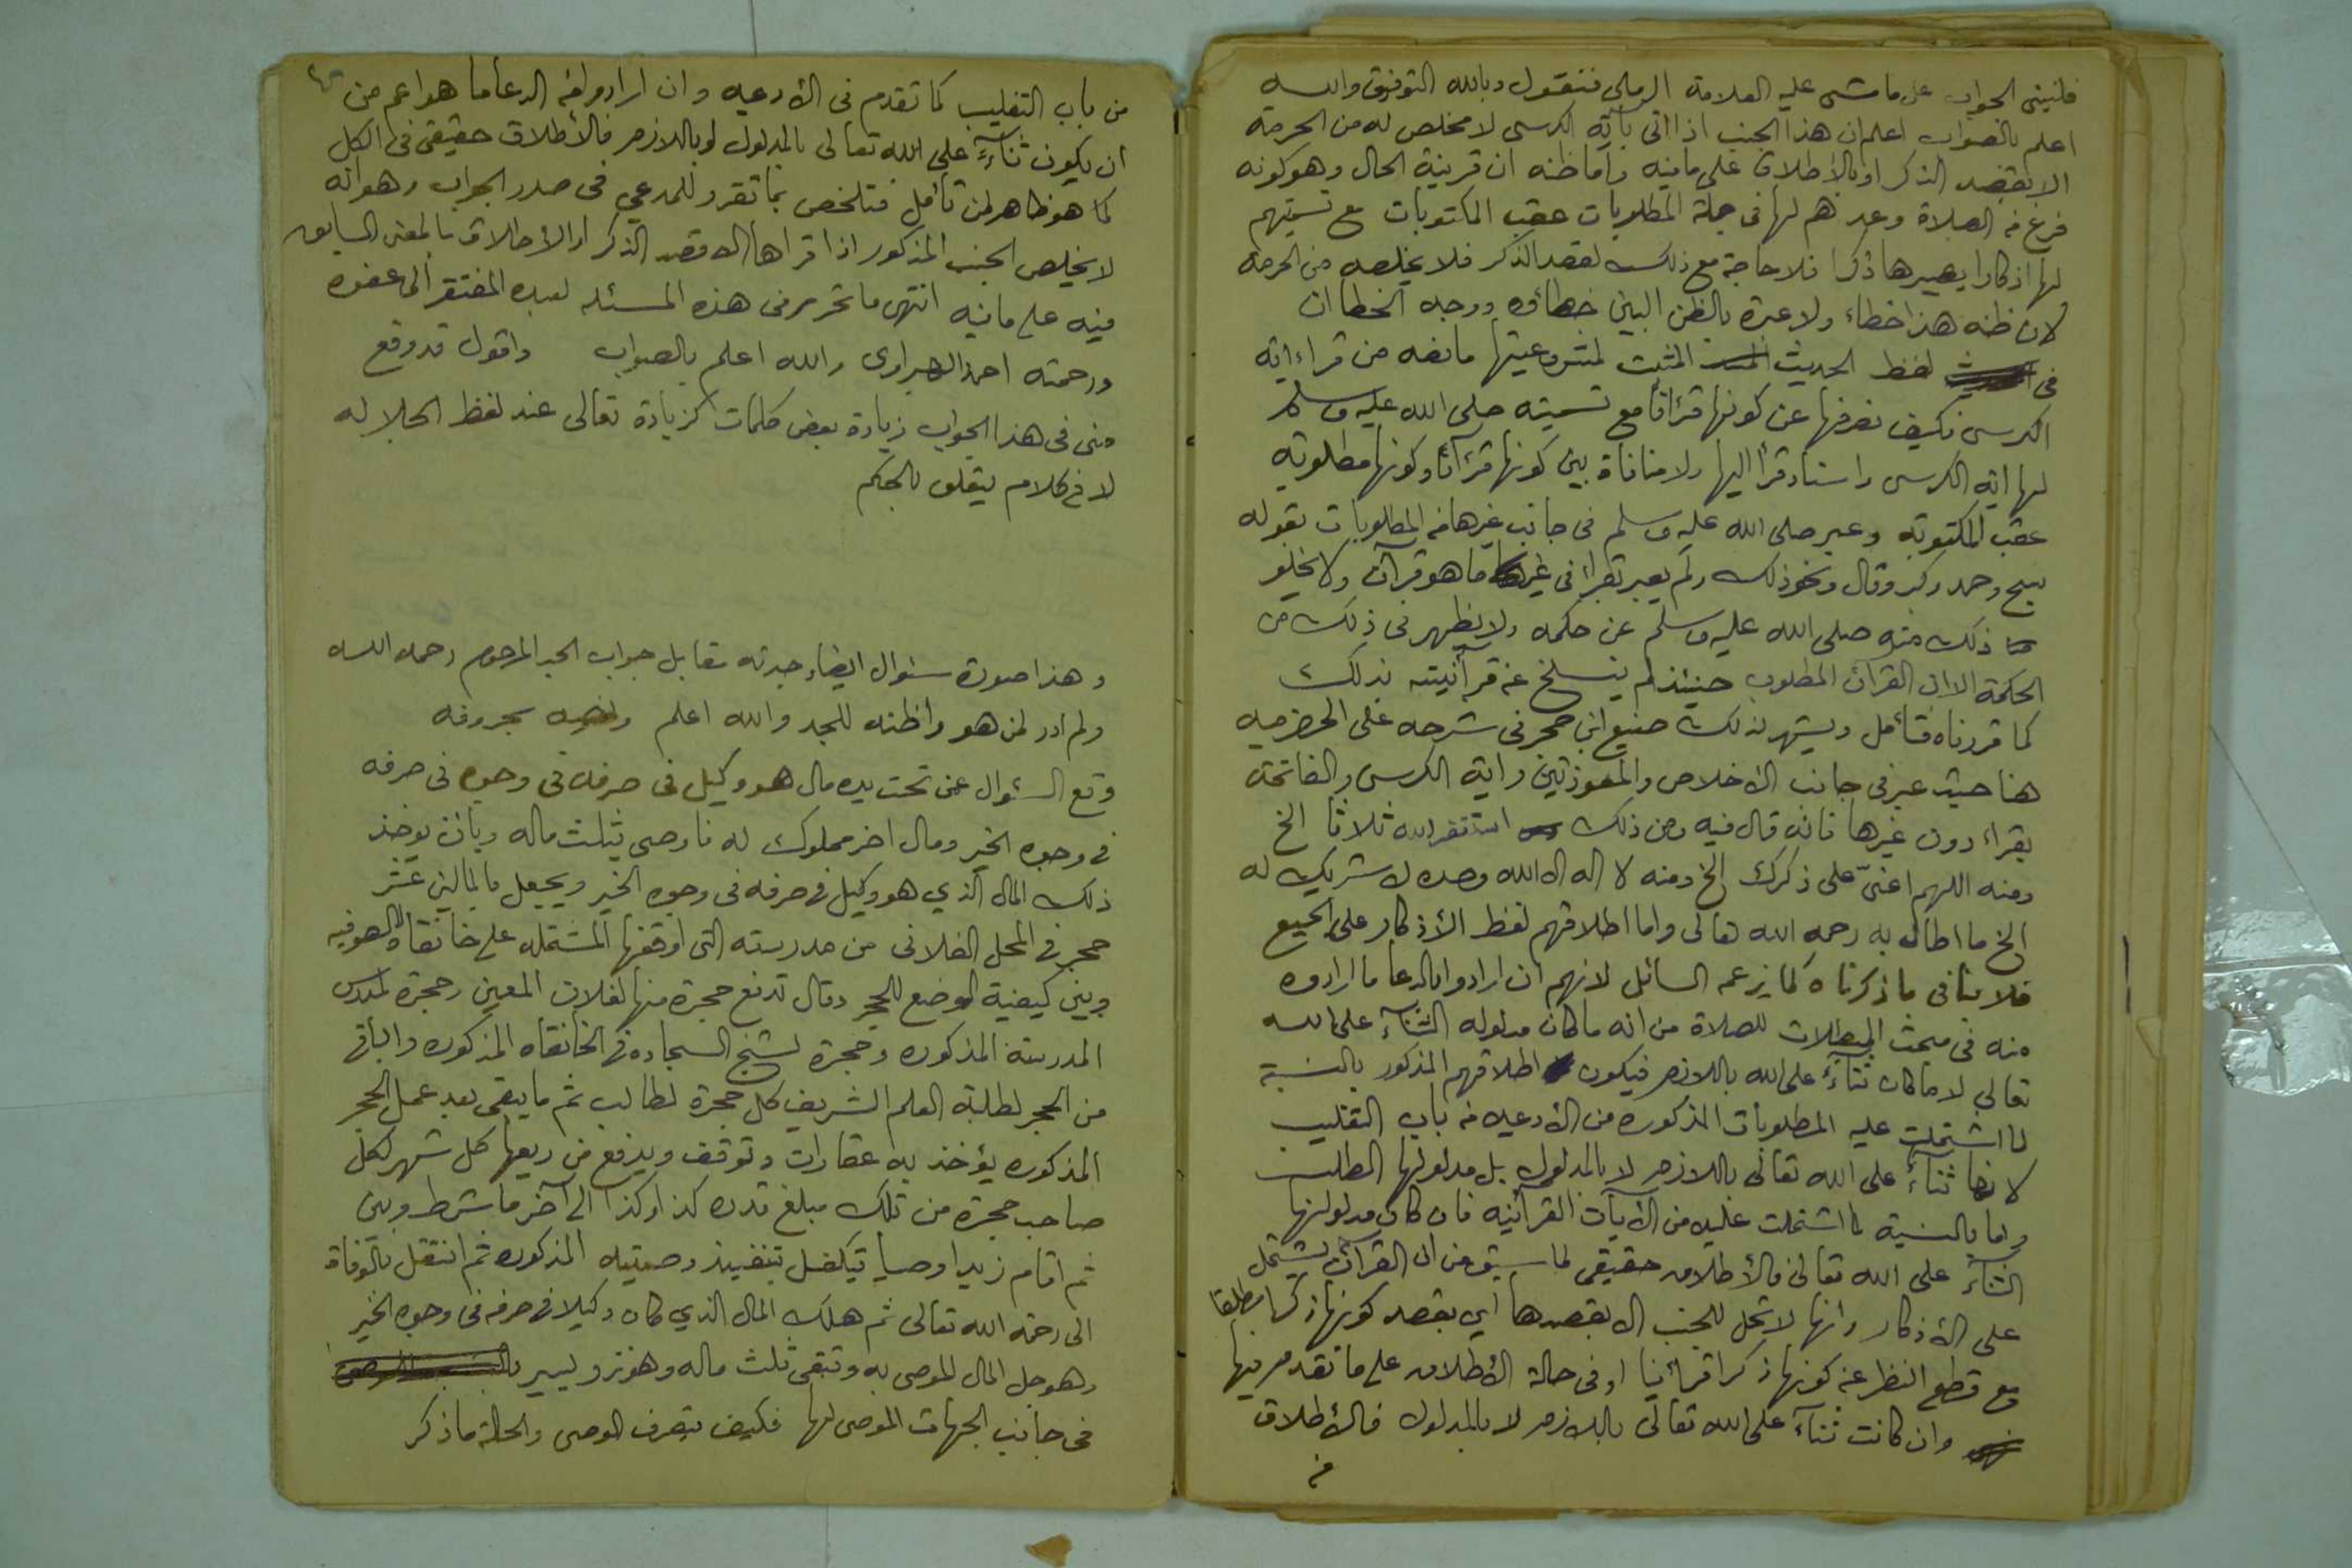 فلنبني الجواب على ما مشى عليه العلامة الرملي فنقول وبالله التوفيق والله
اعلم بالصواب اعلم ان هذا الجنب اذا اتى بآية الكرسي لا مخلص له من الحرمة
الا بقصد الذكر او بالاطلاق على ما فيه واما ظنه ان قرينة الحال وهو كونه
فرغ من الصلاة وعدهم لها في جملة المطلوبات عقب المكتوبات مع تسميتهم
لها اذكارا يصيرها ذكرا فلا حاجة مع ذلك لقصد الذكر فلا يخلصه من الحرمة
لان ظنه هذا خطاء ولا عبرة بالظن البين خطاؤه ووجه الخطا ان
في لفظ الحديث المثبت لمشروعيتها مانعه من قراءاية
الكرسي فكيف نصرفها عن كونها قرآنا مع تسميته صلى الله عليه وسلم
لها اية الكرسي واسناد قرأ اليها ولا منافاة بين كونها قرآنا وكونها مطلوبة
عقب المكتوبة وعبر صلى الله عليه وسلم في جانب غيرها من المطلوبات بقوله
سبح وحمد وكبر وقال ونحو ذلك ولم يعبر بقرأ في غير ما هو قرآن ولا يخلو
ذلك منه صلى الله عليه وسلم عن حكمه ولا يظهر في ذلك من
الحكمة الا ان القرآن المطلوب حينئذ لم ينسلخ عن قرآنيته بذلك
كما قررناه فتأمل ويشهد لذلك صنيع ابن حجر في شرحه على الحضرميه
هنا حيث عبر في جانب الاخلاص والمعوذتين واية الكرسي والفاتحة
بقراء دون غيرها فانه قال فيه ومن ذلك استغفر الله ثلاثا الخ
ومنه اللهم اعنّي على ذكرك الخ ومنه لا اله الا الله وحده لا شريك له
الخ ما اطال به رحمه الله تعالى واما اطلاقهم لفظ الأذكار على الجميع
فلا ينافي ما ذكرناه كما يزعمه السائل لانهم ان ارادوا بالدعا ما ارادوه
منه في مبحث المبطلات للصلاة من انه ما كان مدلوله الثناء على الله
تعالى لا ما كان ثناءً على الله باللازم فيكون اطلاقهم المذكور بالنسبة
لما اشتملت عليه المطلوبات المذكوره من الأدعيه من باب التغليب
لانها ثناءً على الله تعالى باللازم لا بالمدلول بل مدلولها الطلب
واما بالنسبة لما اشتملت عليه من الآيات القرآنيه فان كان مدلولها
الثناءَ على الله تعالى فالأطلاق حقيقي لما سبق من ان القرآن يشتمل
على الأذكار وانها لا تحل للجنب الا بقصدها اي بقصد كونها ذكرا مطلقا
مع قطع النظر عن كونها ذكرا قرآنيا او في حالة الأطلاق على ما تقدم فيها
وان كانت ثناءً على الله تعالى باللازم لا بالمدلول فالأطلاق
من
من باب التغليب كما تقدم في الأدعيه وان ارادوا من الدعا ما هو اعم من
ان يكون ثناءً على الله تعالى بالمدلول او باللازم فالأطلاق حقيقي في الكل
كما هو ظاهر لمن تأمل فتلخص بما تقرر للمدعي في صدر الجواب وهو انه
لا يخلص الجنب المذكور اذا قراها الا قصد الذكر او الأطلاق بالمعنى السابق
فيه على ما فيه انتهى ما تحرر في هذه المسئله لعبده المفتقر الى عفوه
ورحمته احمد الهراوي والله اعلم بالصواب واقول قد وقع
مني في هذا الجواب زيادة بعض كلمات كزيادة تعالى عند لفظ الجلاله
لا في كلام يتعلق بالحكم
وهذا صورة سئوال ايضا وجدته مقابل جواب الجد المرحوم رحمه الله
ولم ادر لمن هو واظنه للجد والله اعلم بحروفه
وقع السئوال عن تحت يده مال هو وكيل في صرفه في وجوه في صرفه
في وجوه الخير ومال اخر مملوك له فاوصى بثلث ماله وبان يوخذ
ذلك المال الذي هو وكيل في صرفه في وجوه الخير ويجعل بالمالين عشر
حجر في المحل الفلاني من مدرسته التي اوقفها المشتمله على خانقاه الصوفيه
وبين كيفية الوضع للحجر وقال تدفع حجرة منها لفلان المعين وحجرة لمدرس
المدرسة المذكوره وحجرة لشيخ السجاده في الخانقاه المذكوره والباقي
من الحجر لطلبة العلم الشريف كل حجرة لطالب ثم ما يبقى بعد عمل الحجر
المذكوره يؤخذ به عقارات وتوقف ويدفع من ريعها كل شهر لكل
صاحب حجرة من تلك مبلغ قدره كذا وكذا الى آخر ما شرط وبين
ثم اقام زيدا وصيا يتكفل بتنفيذ وصيتيه المذكوره ثم انتقل بالوفاة
الى رحمة الله تعالى ثم هلك المال الذي كان وكيلا في صرفه في وجوه الخير
وهو جل المال الموصى به وتبقى ثلث ماله وهو نزر يسير
في جانب الجهات الموصى لها فكيف يتصرف الوصي والحالة ما ذكر